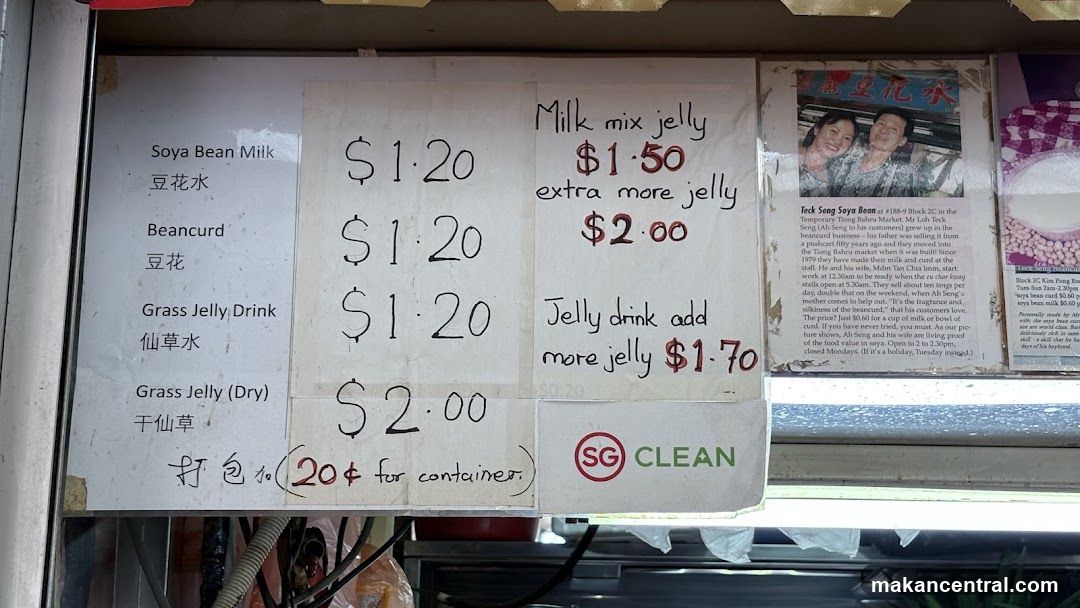 Soya Bean Milk
豆花水
$1.20
Beancurd
豆花
$1.20
Grass Jelly Drink
仙草水
$1.20
Grass Jelly (Dry)
干仙草
$2.00
打包加(20¢ for container.)
Milk mix jelly
$1.50
extra more jelly
$2.00
Jelly drink add
more jelly $1.70
$0.20
SG CLEAN
豆花水
Teck Seng Soya Bean at #188-9 Block 2C in the
Temporary Tiong Bahru Market. Mr Loh Teck
Seng (Ah Seng to his customers) grew up in the
beancurd business – his father was selling it from
a pushcart fifty years ago and they moved into
the Tiong Bahru market when it was built! Since
1979 they have made their milk and curd at the
stall. He and his wife, Mdm Tan Chia Imm, start
work at 12.30am to be ready when the zu cher kuay
stalls open at 5.30am. They sell about ten tongs per
day, double that on the weekend, when Ah Seng's
mother comes to help out. "It's the fragrance and
silkiness of the beancurd," that his customers love.
The price? Just $0.60 for a cup of milk or bowl of
curd. If you have never tried, you must. As our pic-
ture shows, Ah Seng and his wife are living proof
of the food value in soya. Open to 2 to 2.30pm,
closed Mondays. (If it's a holiday, Tuesday instead.)
Teck Seng Beancurd
Block 2C Kim Pong Ro
Tues-Sun 2am-2.30pm
soya bean curd $0.60 p
soya bean milk $0.60 p
Personally made by Mr
wife, the soya bean cur
are world class. Bo
deliciously rich in taste
skill - a skill that he ha
days of his boyhood.
makancentral.com